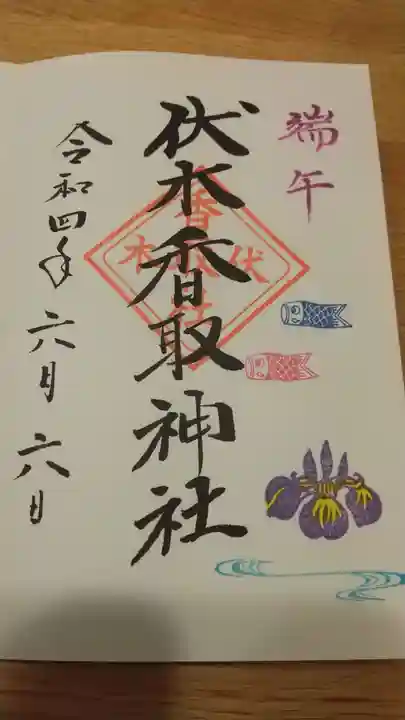 端午
伏木香取神社
令和四年 六月 六日